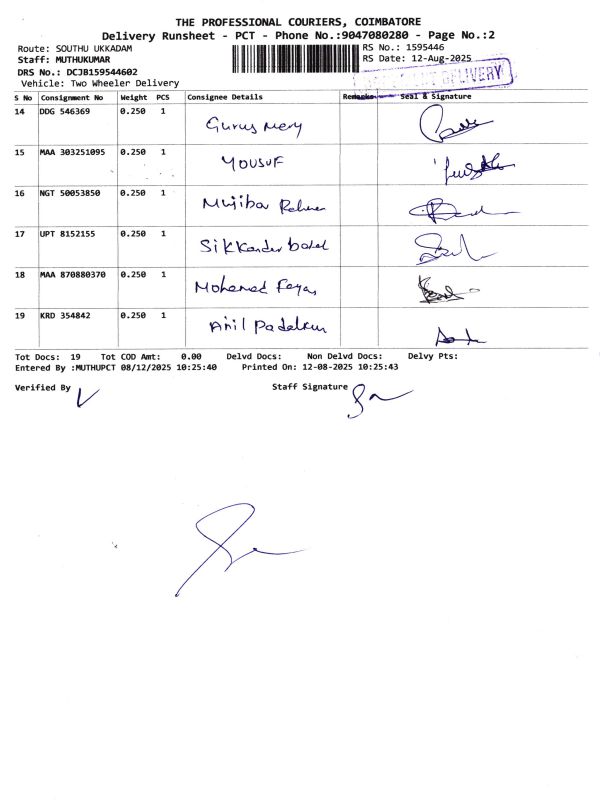 THE PROFESSIONAL COURIERS, COIMBATORE
Delivery Runsheet - PCT - Phone No.:9047080280 - Page No.:2
Route: SOUTHU UKKADAM
RS No.: 1595446
Staff: MUTHUKUMAR
RS Date: 12-Aug-2025
DRS No.: DCJB159544602
DELIVERY
Vehicle: Two Wheeler Delivery
S No Consignment No Weight PCS Consignee Details Remarks Seal & Signature
14 DDG 546369 0.250 1 Gurus Mery
15 MAA 303251095 0.250 1 YOUSUF
16 NGT 50053850 0.250 1 Mujibar Rehman
17 UPT 8152155 0.250 1 Sikkander
18 MAA 870880370 0.250 1 Mohamed Fayas
19 KRD 354842 0.250 1 Anil
Tot Docs: 19 Tot COD Amt: 0.00 Delvd Docs: Non Delvd Docs: Delvy Pts:
Entered By :MUTHUPCT 08/12/2025 10:25:40 Printed On: 12-08-2025 10:25:43
Verified By Staff Signature